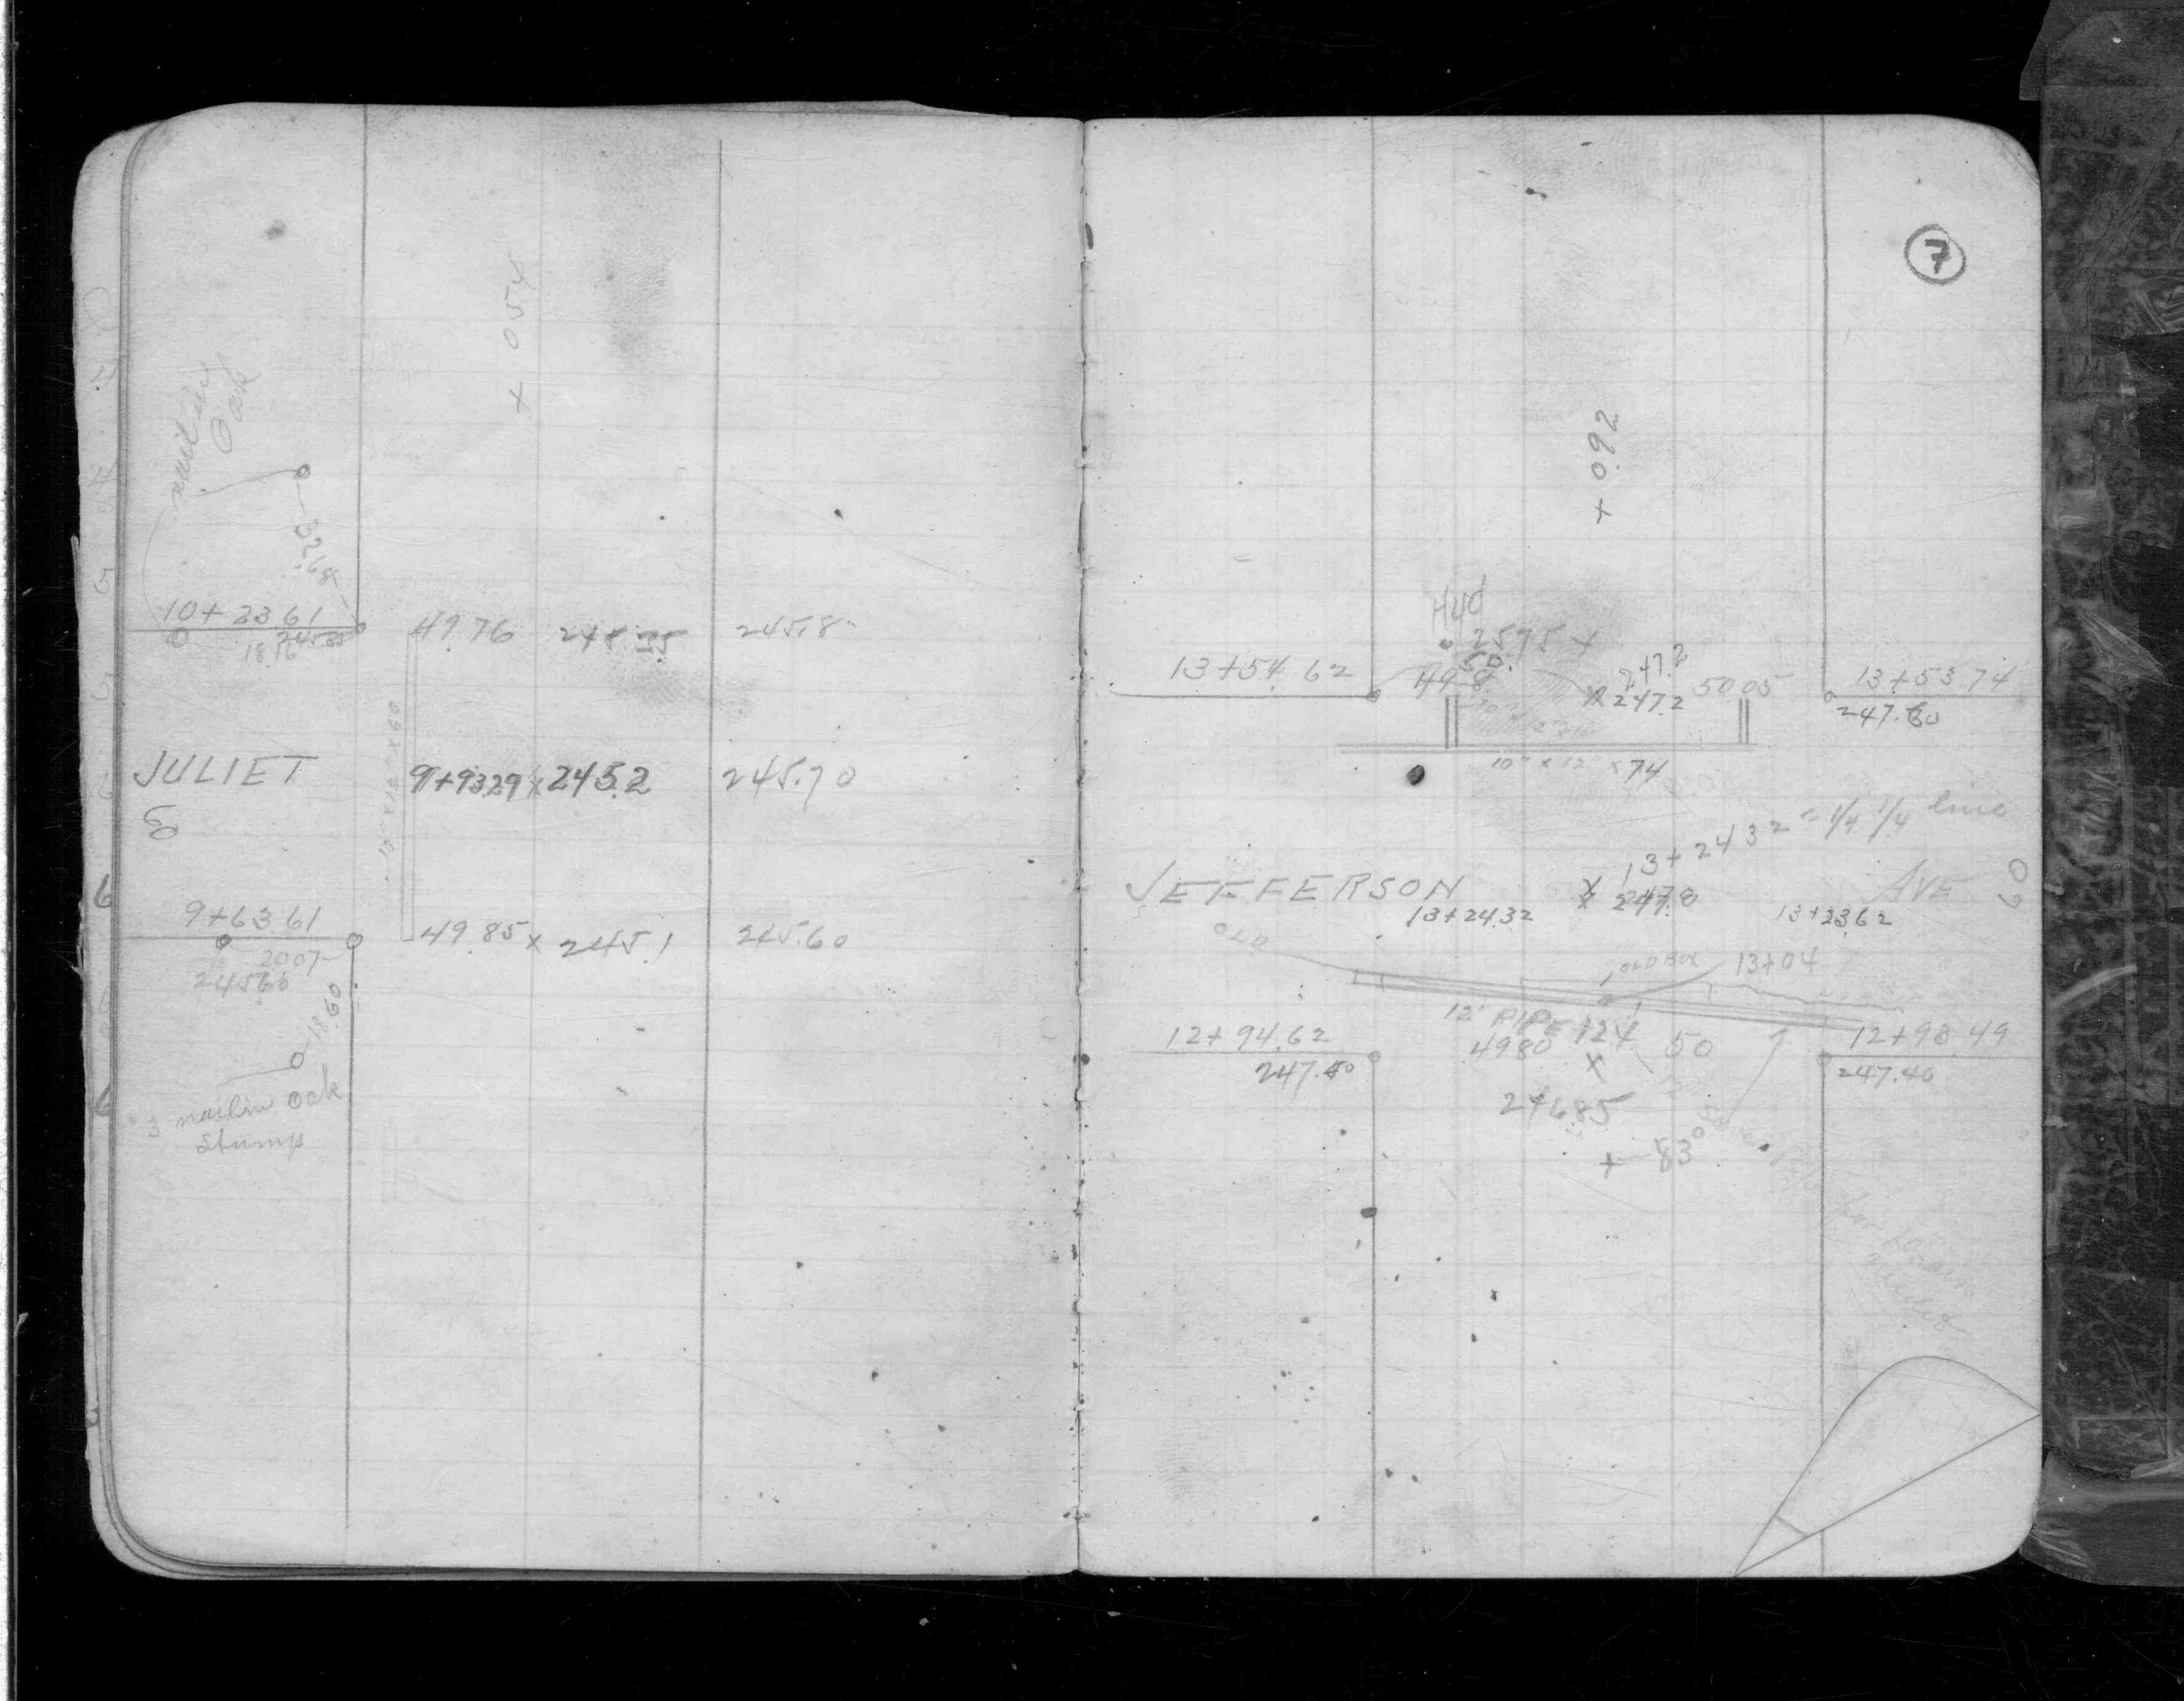 + 054
nail in
Oak
32.68
10+23.61
18.56
245.85
49.76
245.8
JULIET
9+93.29 x 245.2
245.70
10" x 12" x 60
9+63.61
20.07
245.66
49.85 x 245.1
245.60
18.60
3 nail in Oak
Stump
7
+ 092
Hyd
2595 x
13+54.62
247.2
x 247.2
50.05
13+53.74
247.60
10" x 12" x 74
13+24.32 = 1/4 1/4 line
JEFFERSON
AVE
60
x 247.0
13+24.32
13+23.62
OLD
OLD BOX
13+04
12" PIPE 124
12+94.62
247.40
49.80
50
12+93.49
247.40
x
246.85
+ 83°